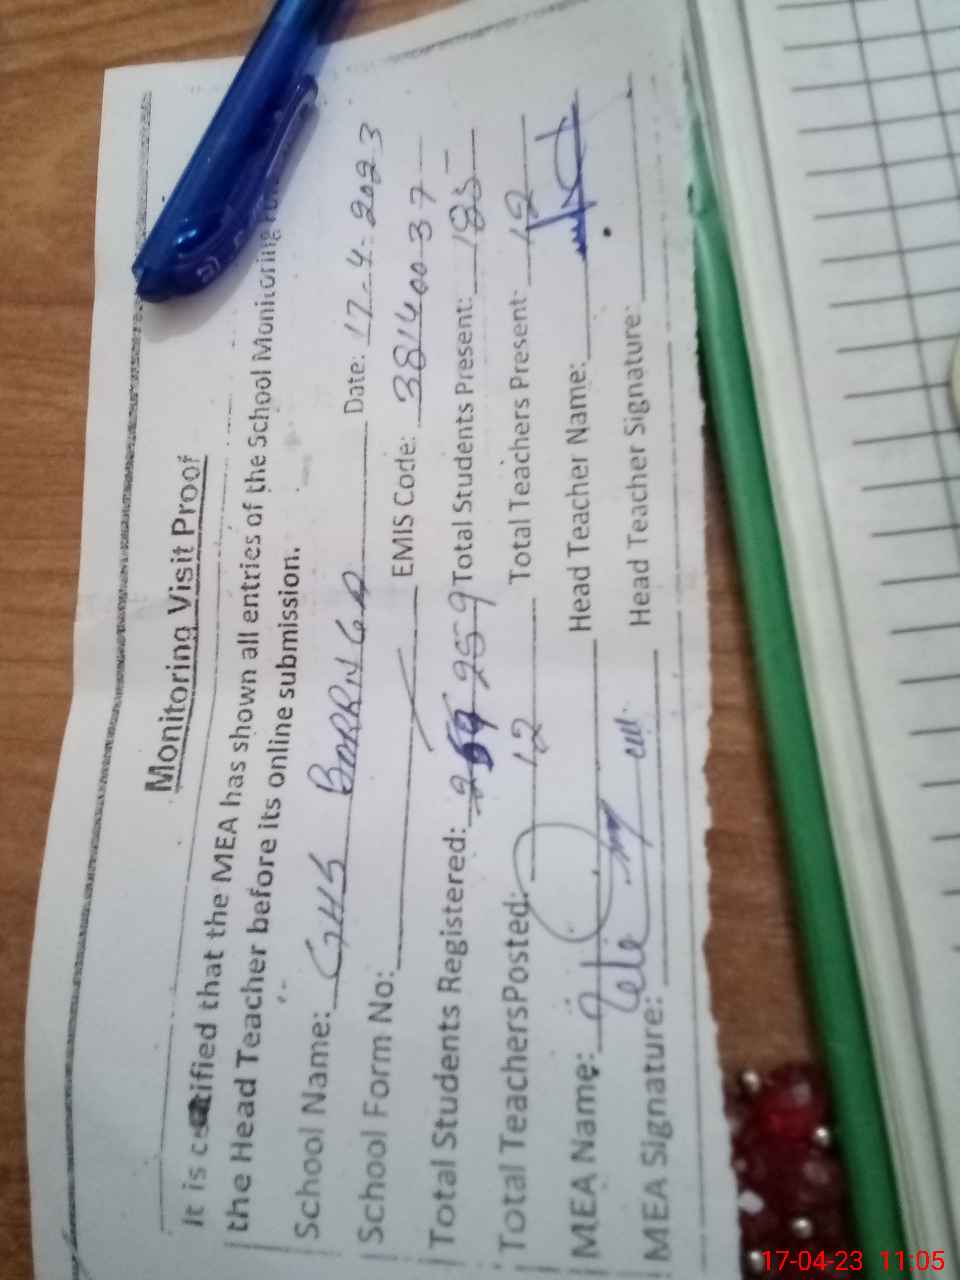 Monitoring Visit Proof
It is certified that the MEA has shown all entries of the School Monitoring
the Head Teacher before its online submission.
School Name: GHS Date: 17-4-2023
School Form No: EMIS Code: 38140037
Total Students Registered: 259 Total Students Present: 185
Total TeachersPosted: 12 Total Teachers Present: 12
MEA Name: Head Teacher Name:
MEA Signature: Head Teacher Signature:
17-04-23 11:05